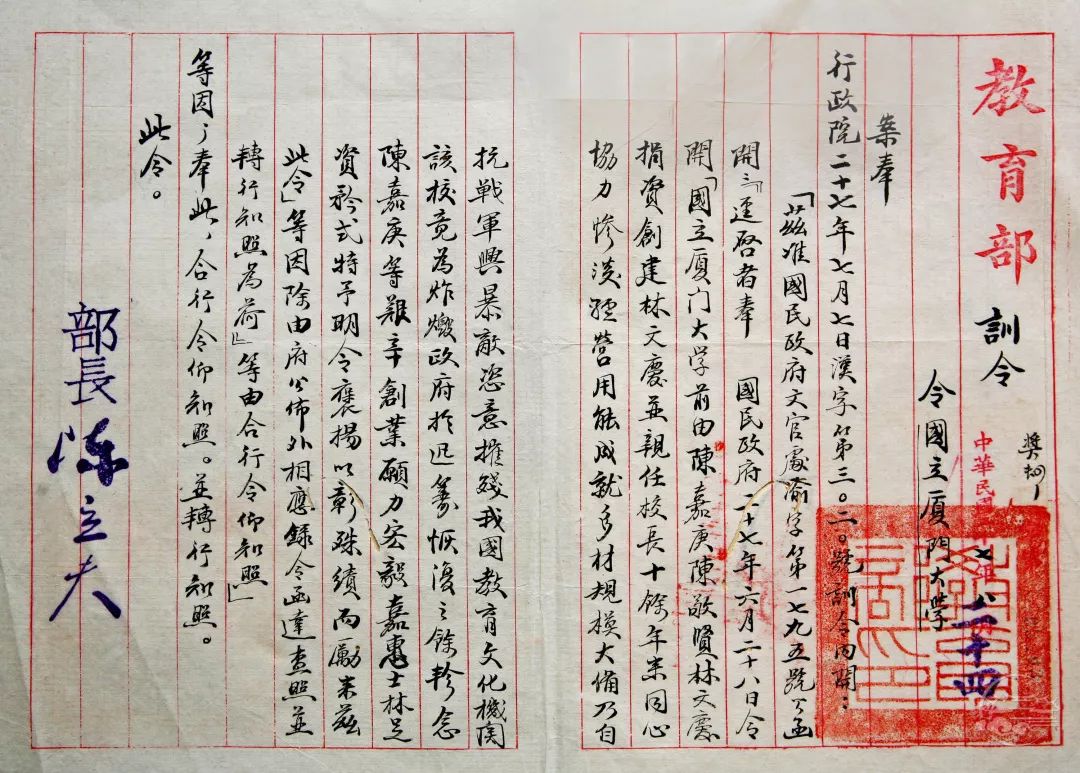 教育部 訓令
中華民國
七 八 二十四
令國立厦門大學
案奉
行政院二十七年七月七日漢字第三〇二〇號訓令內開：
「茲准國民政府文官處渝字第一七九五號公函
開：『逕啓者奉 國民政府二十七年六月二十八日令
開「國立厦门大学前由陳嘉庚陳敬賢林文慶
捐資創建林文慶並親任校長十餘年来同心
協力慘淡經营用能成就多材規模大備乃自
抗戰軍興暴敵恣意摧殘我國教育文化機関
該校竟為炸燬政府於迅籌恢復之餘軫念
陳嘉庚等艱辛創業願力宏毅嘉惠士林足
資矜式特予明令襃揚以彰殊績而勵来茲
此令」等因除由府公佈外相應録令函達查照並
轉行知照為荷』等由合行令仰知照」
等因；奉此，合行令仰知照。並轉行知照。
此令。
部長 陈立夫